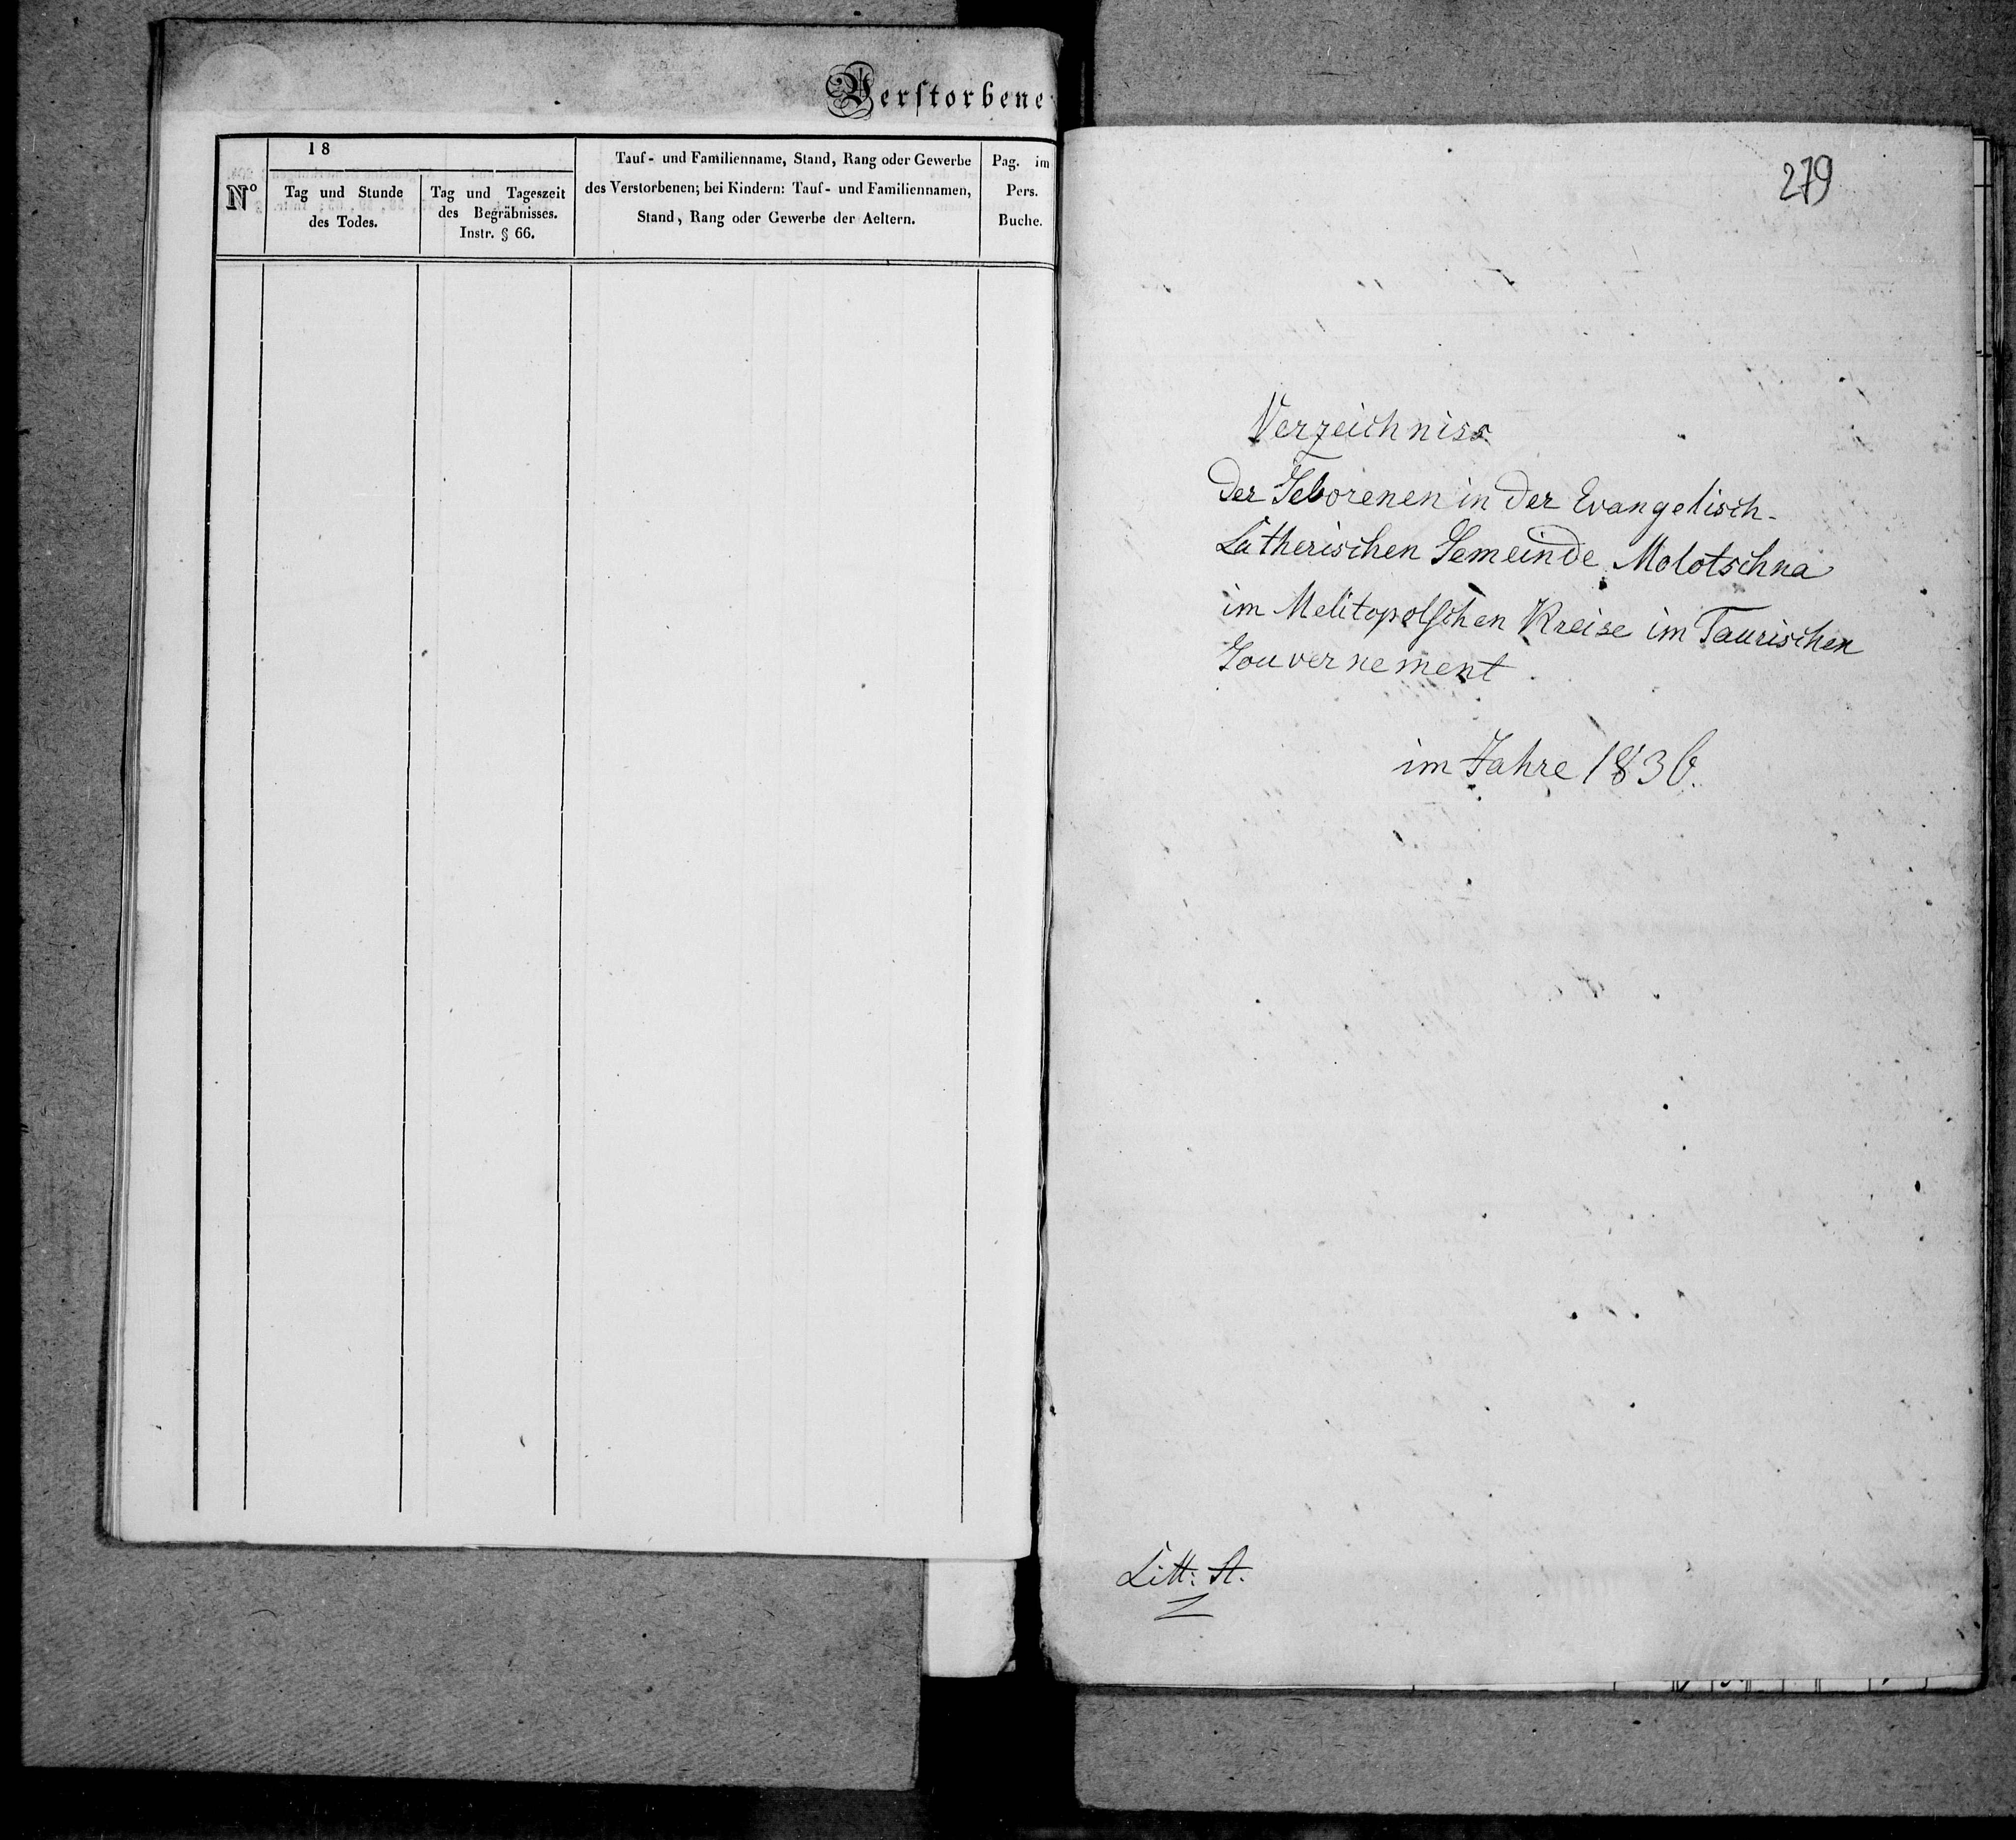 Verstorbene
N°
18
Tag und Stunde
des Todes.
Tag und Tageszeit
des Begräbnisses.
Instr. § 66.
Tauf- und Familienname, Stand, Rang oder Gewerbe
des Verstorbenen; bei Kindern: Tauf- und Familiennamen,
Stand, Rang oder Gewerbe der Aeltern.
Pag. im
Pers.
Buche.
279
Verzeichniss
der Geborenen in der Evangelisch-
Lutherischen Gemeinde Molotschna
im Melitopolschen Kreise im Taurischen
Gouvernement
im Jahre 1836.
Litt: A.